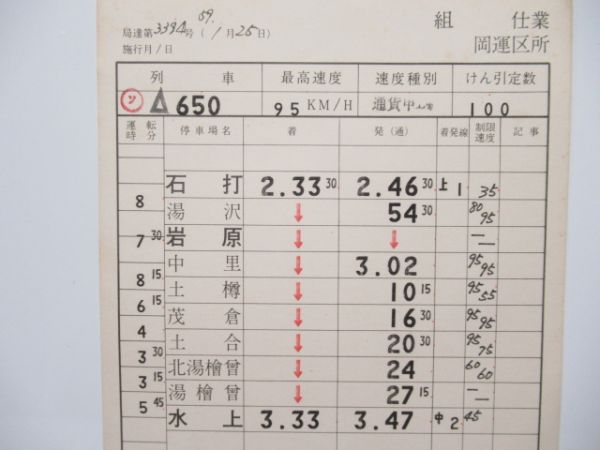 局達第3394号(59. 1月25日)
施行月/日
組 仕業
岡運区所
列 車 最高速度 速度種別 けん引定数
ソ △650 95 KM/H 通貨甲 100
運転時分 停車場名 着 発(通) 着発線 制限速度 記事
石打 2.33 30 2.46 30 上1 35
8
湯沢 ↓ 54 30 80/95
岩原 ↓ ↓ — —
7 30
中里 ↓ 3.02 95/95
8 15
土樽 ↓ 10 15 95/55
6 15
茂倉 ↓ 16 30 95/95
4
土合 ↓ 20 30 95/75
3 30
北湯檜曾 ↓ 24 60/60
3 15
湯檜曾 ↓ 27 15 — —
5 45
水上 3.33 3.47 中2 45